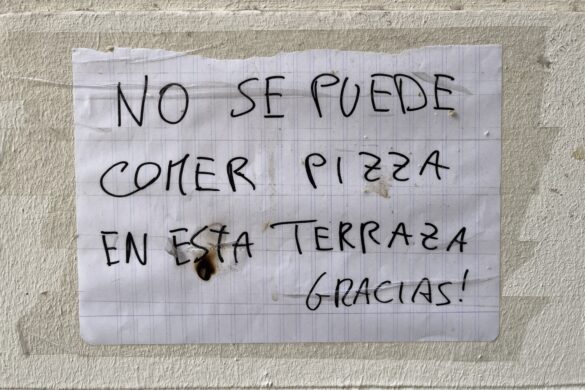 NO SE PUEDE
COMER PIZZA
EN ESTA TERRAZA
GRACIAS!